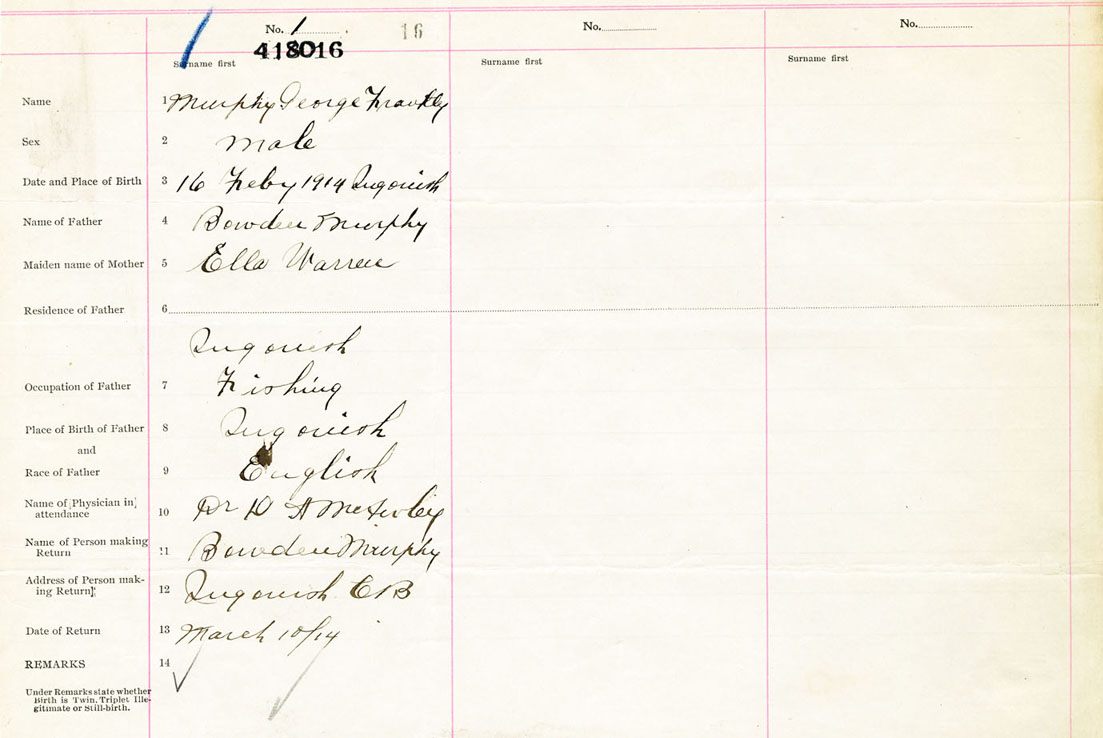 No. 1 16
418016
No.
No.
Surname first
Surname first
Surname first
Name 1 Murphy George
Sex 2 Male
Date and Place of Birth 3 16 Feby 1914 Ingonish
Name of Father 4 Bowden Murphy
Maiden name of Mother 5 Ella Warren
Residence of Father 6
Ingonish
Occupation of Father 7 Fishing
Place of Birth of Father 8 Ingonish
and
Race of Father 9 English
Name of Physician in
attendance 10 Dr
Name of Person making
Return 11 Bowden Murphy
Address of Person mak-
ing Return 12 Ingonish CB
Date of Return 13 March 10/14
REMARKS 14
Under Remarks state whether
Birth is Twin, Triplet Ille-
gitimate or Still-birth.